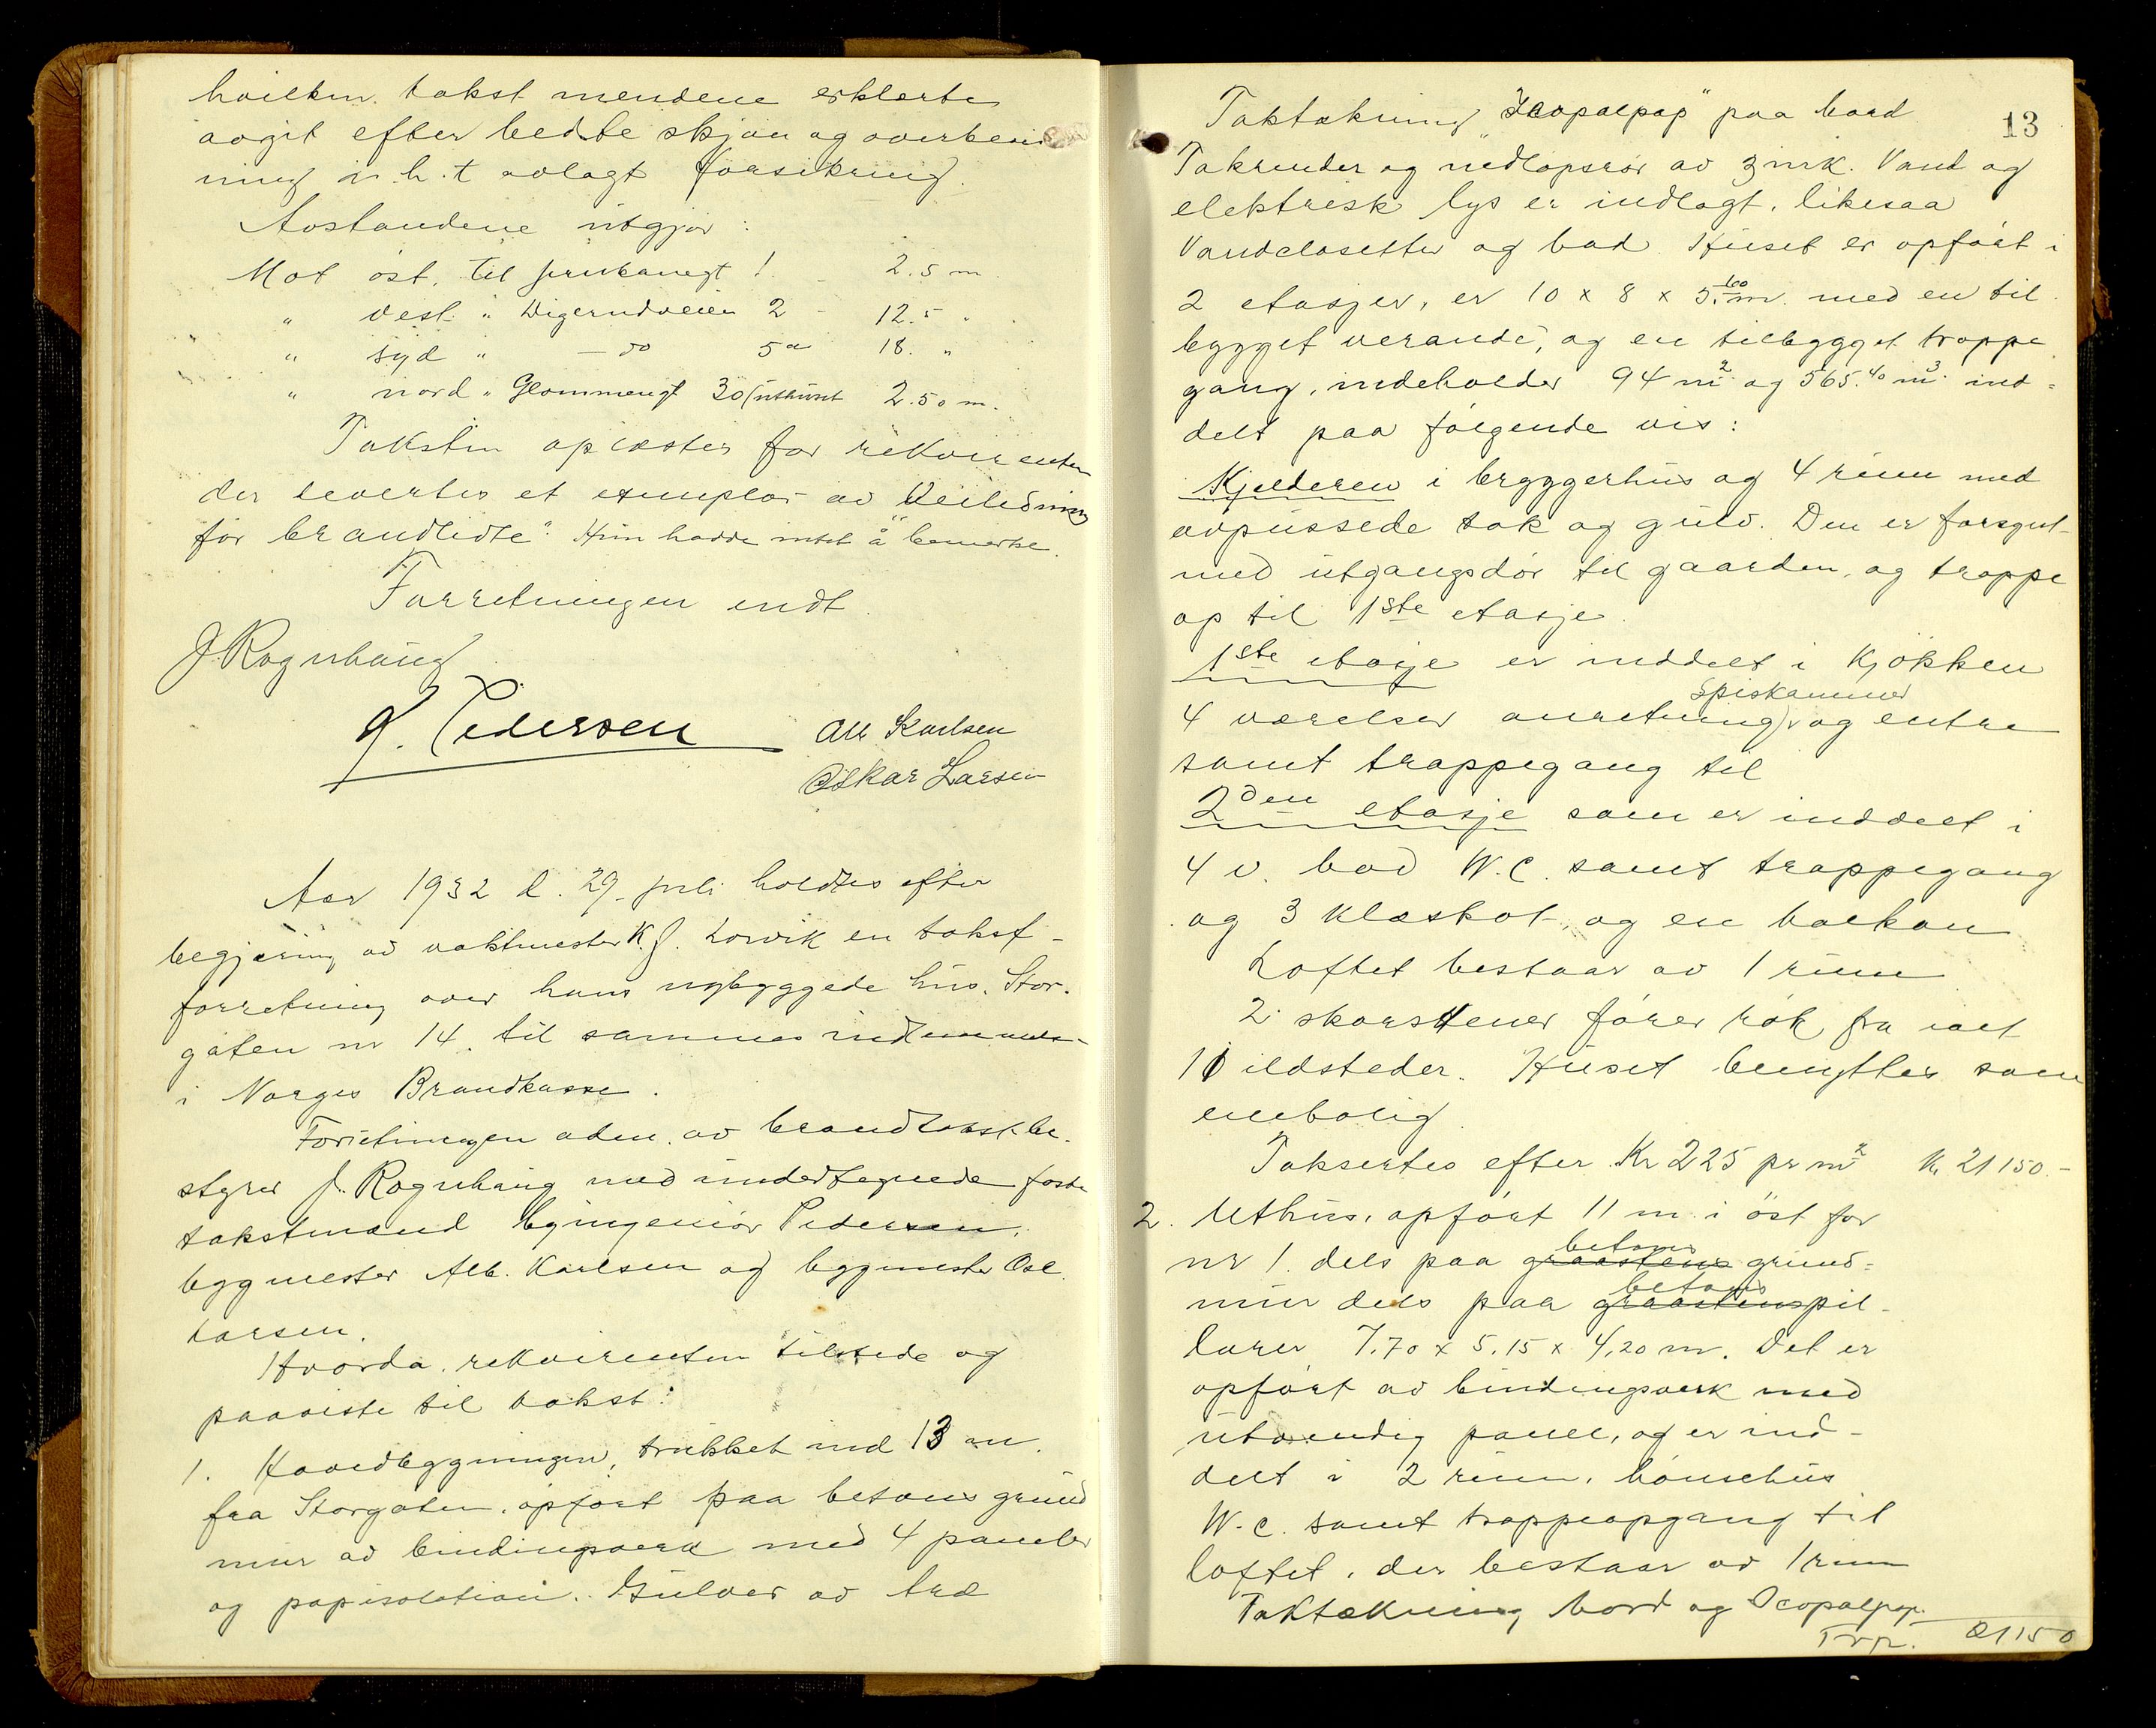 hvilken takst mændene erklærte
avgit efter bedste skjøn og overbevis
ning i. h. t avlagt forsikring.
Avstandene utgjør:
Mot øst. til Jernbanegt 1. 2.5 m.
" vest. " Digerudveien 2 - 12.5 "
" syd " — do 5a 18. "
" nord " Glommengt 30 (uthuset 2.50 m.
Taksten oplæstes for rekvirenten
der levertes et exemplar av "Veiledning
for brandlidte". Hun hadde intet å bemerke.
Forretningen endt.
J. Rognhaug
J. Pedersen Alb Karlsen
Oskar Larsen
Aar 1932 d. 29. juli holdtes efter
begjæring av vaktmester K. J. Lorvik en takst-
forretning over hans nybyggede hus. Stor-
gaten nr 14. til sammes
i Norges Brandkasse.
Forretningen adm. av brandtakstbe-
styrer J. Rognhaug med undertegnede faste
takstmænd byingeniør Pedersen,
byggmester Alb. Karlsen og byggmester Osc.
Larsen.
Hvorda rekvirenten tilstede og
paaviste til takst:
1. Hovedbygningen, trukket ind 13 m.
fra Storgaten, opført paa betons grund
mur av bindingsverk med 4 paneler
og papisolation. Gulver av træ
13
Taktækning "Icopalpap" paa bord
Takrender og nedløpsrør av zink. Vand og
elektrisk lys er indlagt, likesaa
Vandclosetter og bad. Huset er opført i
2 etasjer, er 10 x 8 x 5.60 m. med en til
bygget veranda, og en tilbygget trappe
gang, indeholder 94 m2 og 565.40 m3. ind-
delt paa følgende vis:
Kjelderen i bryggerhus og 4 rum med
avpussede tak og gulv. Den er forsynt
med utgangsdør til gaarden, og trappe
op til 1ste etasje.
1ste etasje er inddelt i Kjøkken
spiskammer
4 værelser anretning, og entre
samt trappegang til
2den etasje som er inddelt i
4 v. bad W.C. samt trappegang
og 3 klæskot, og en balkon
Loftet bestaar av 1 rum
2 skorstener fører røk fra ialt
10 ildsteder. Huset benyttes som
enebolig
Taksertes efter Kr 225 pr m2 Kr 21150.-
2. Uthus, opført 11 m. i øst for
betons
nr 1. dels paa graastens grund-
betons
mur dels paa graastenspil-
larer 7.70 x 5.15 x 4.20 m. Det er
opført av bindingsverk med
utvendig panel, og er ind-
delt i 2 rum, hønsehus
W.C. samt trappeopgang til
loftet, der bestaar av 1 rum
Taktækning bord og Icopalpap.
Trp. 21150